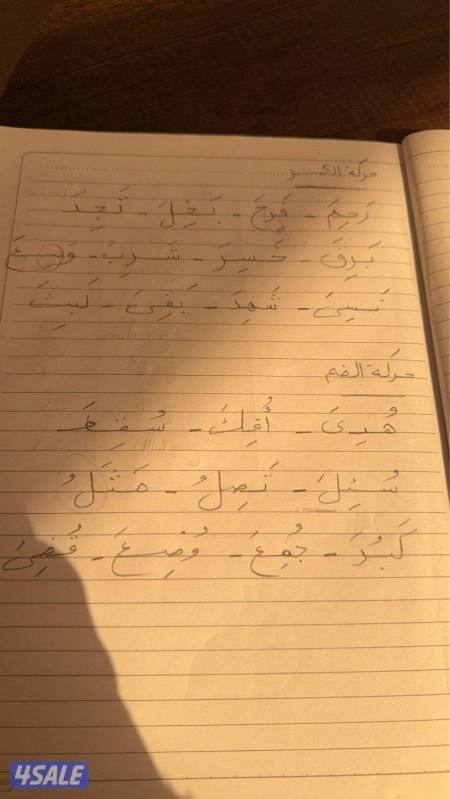 حركة الكسر
رَحِمَ - فَرِحَ - بَخِلَ - تَجِدَ
بَرِقَ - خَسِرَ - شَرِبُ - وَسِعَ
نَسِىَ - شَهِدَ - بَقِىَ - لَبِثَ
حركة الضم
هُدِىَ - أُفِكَ - سُقِطَ
سُئِلَ - تَصِلُ - مَثَلُ
كَبُرَ - جُمِعَ - وُضِعَ - قُضِىَ
4SALE